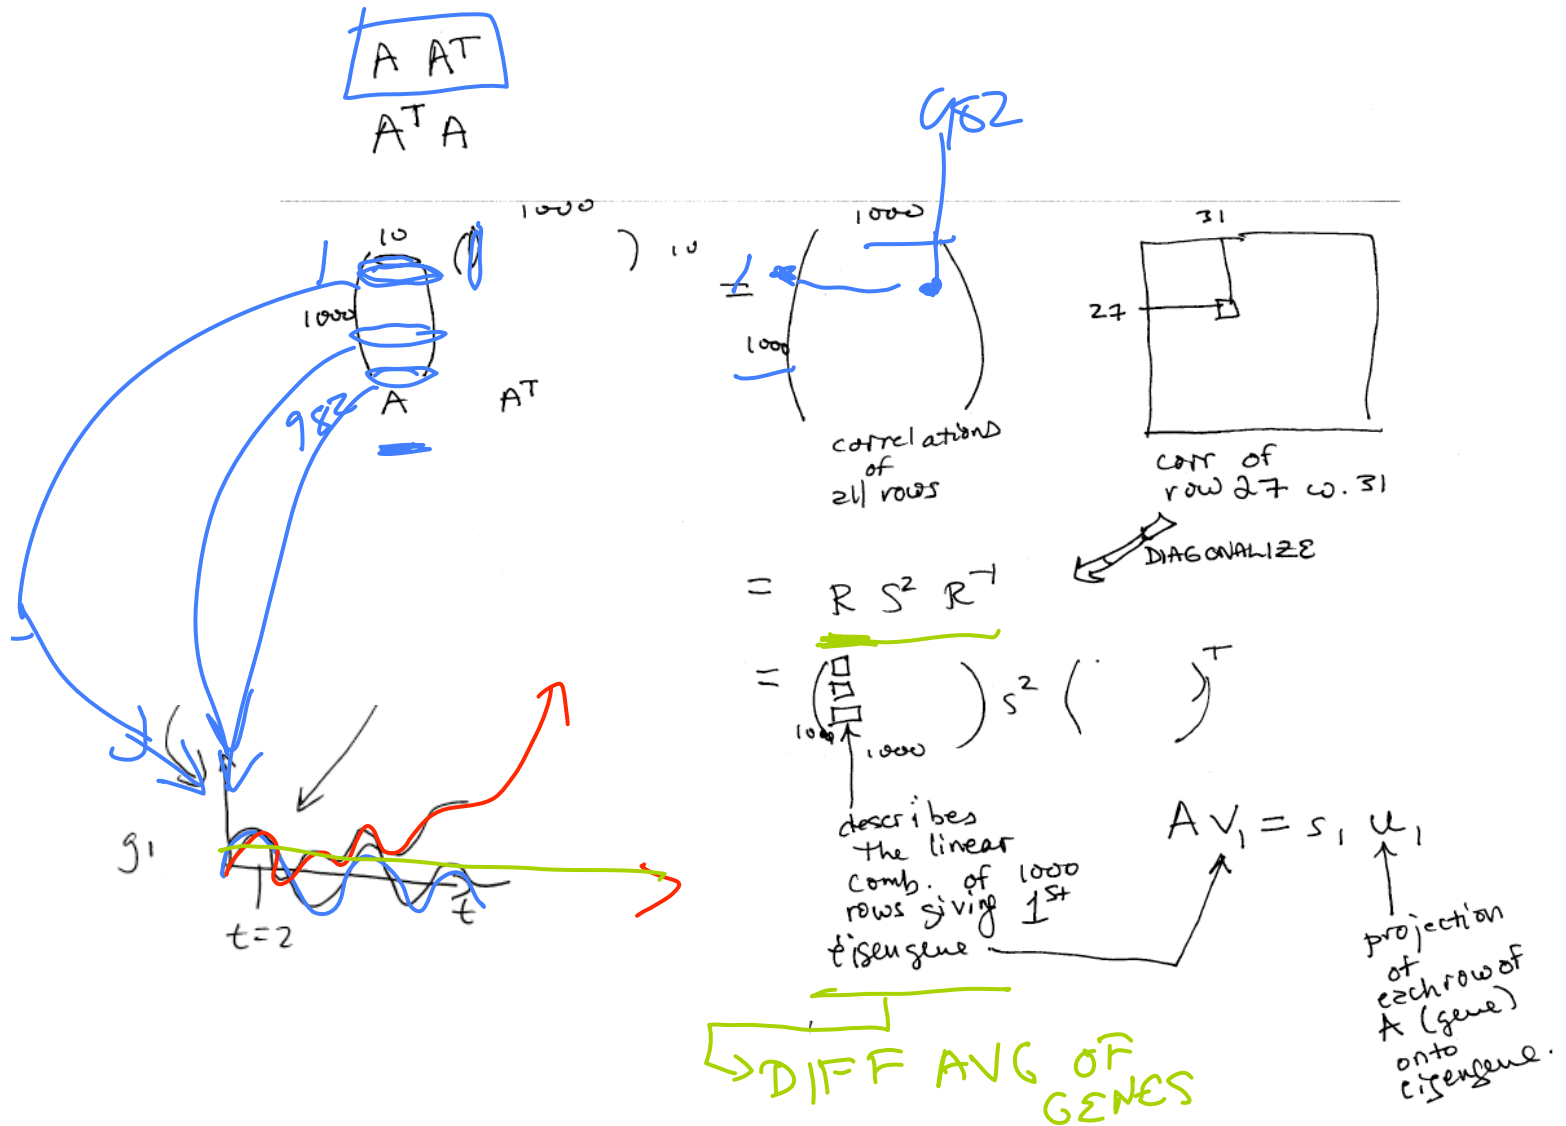 A Aᵀ
Aᵀ A
982
1000
1000
31
10
10
1
1
1000
27
1000
982
A
Aᵀ
correlations
of
all rows
corr of
row 27 w. 31
DIAGONALIZE
= R S² R⁻¹
= ( ) S² ( )ᵀ
1000
1000
g1
t
t=2
describes
the linear
comb. of 1000
rows giving 1st
eigengene
A V₁ = s₁ u₁
projection
of
each row of
A (gene)
onto
eigengene.
DIFF AVG OF
GENES